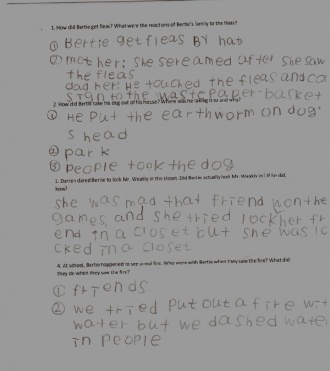 1. How did Bertie get fleas? What were the reactions of Bertie's family to the fleas?
① Bertie get fleas BY hat
② mother: She screamed after she saw
the fleas
dad her: He touched the fleas and ca
sign to the wastepaper-busket
2. How did Bertie take his dog out of his house? Where was he taking it to and why?
① He Put the earthworm on dog'
s head
② park
③ People took the dog
3. Darren dared Bertie to lock Mr. Weakly in the closet. Did Bertie actually lock Mr. Weakly in? If he did,
how?
she was mad that friend won the
games, and she tried lock her fr
end in a closet but she was lo
cked in a closet
4. At school, Bertie happened to see a real fire. Who were with Bertie when they saw the fire? What did
they do when they saw the fire?
① friends
② we tried Put out a fire wit
water but we dashed wate
in people